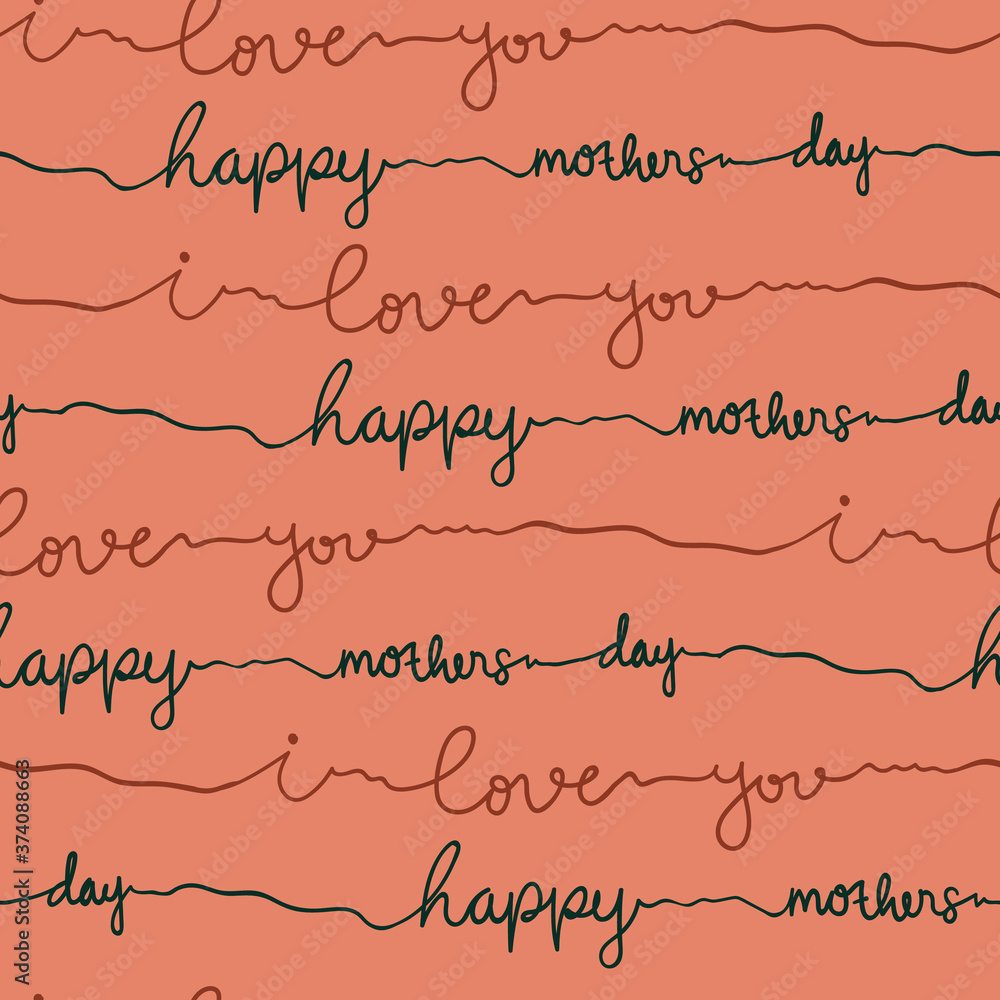 i love you
happy mothers day
i love you
y happy mothers da
love you i l
happy mothers day h
i love you
day happy mothers
i l
Adobe Stock | #374088663